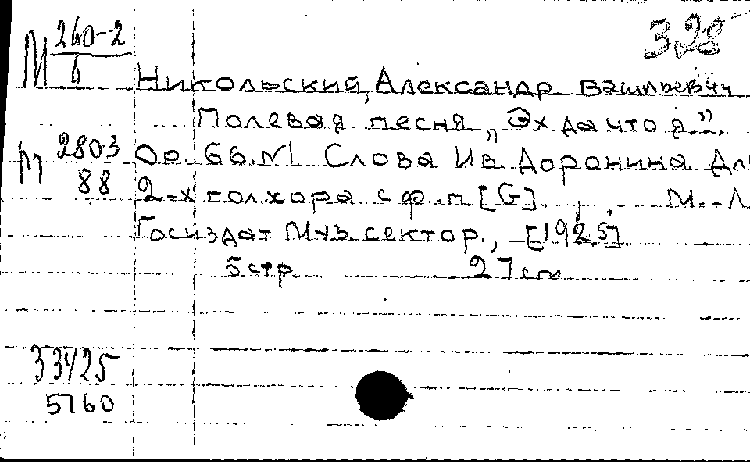 М 260-2/6
3,28
Никольский, Александр Васильевич
Полевая песня „Эх да что я".
М 2803/88
Ор. 66. №1 Слова Ив Доронина Дл
2-х гол хора с ф.п [G]. М.-Л
Госиздат Муз сектор., [1925]
5 стр 27 см
33425
5760